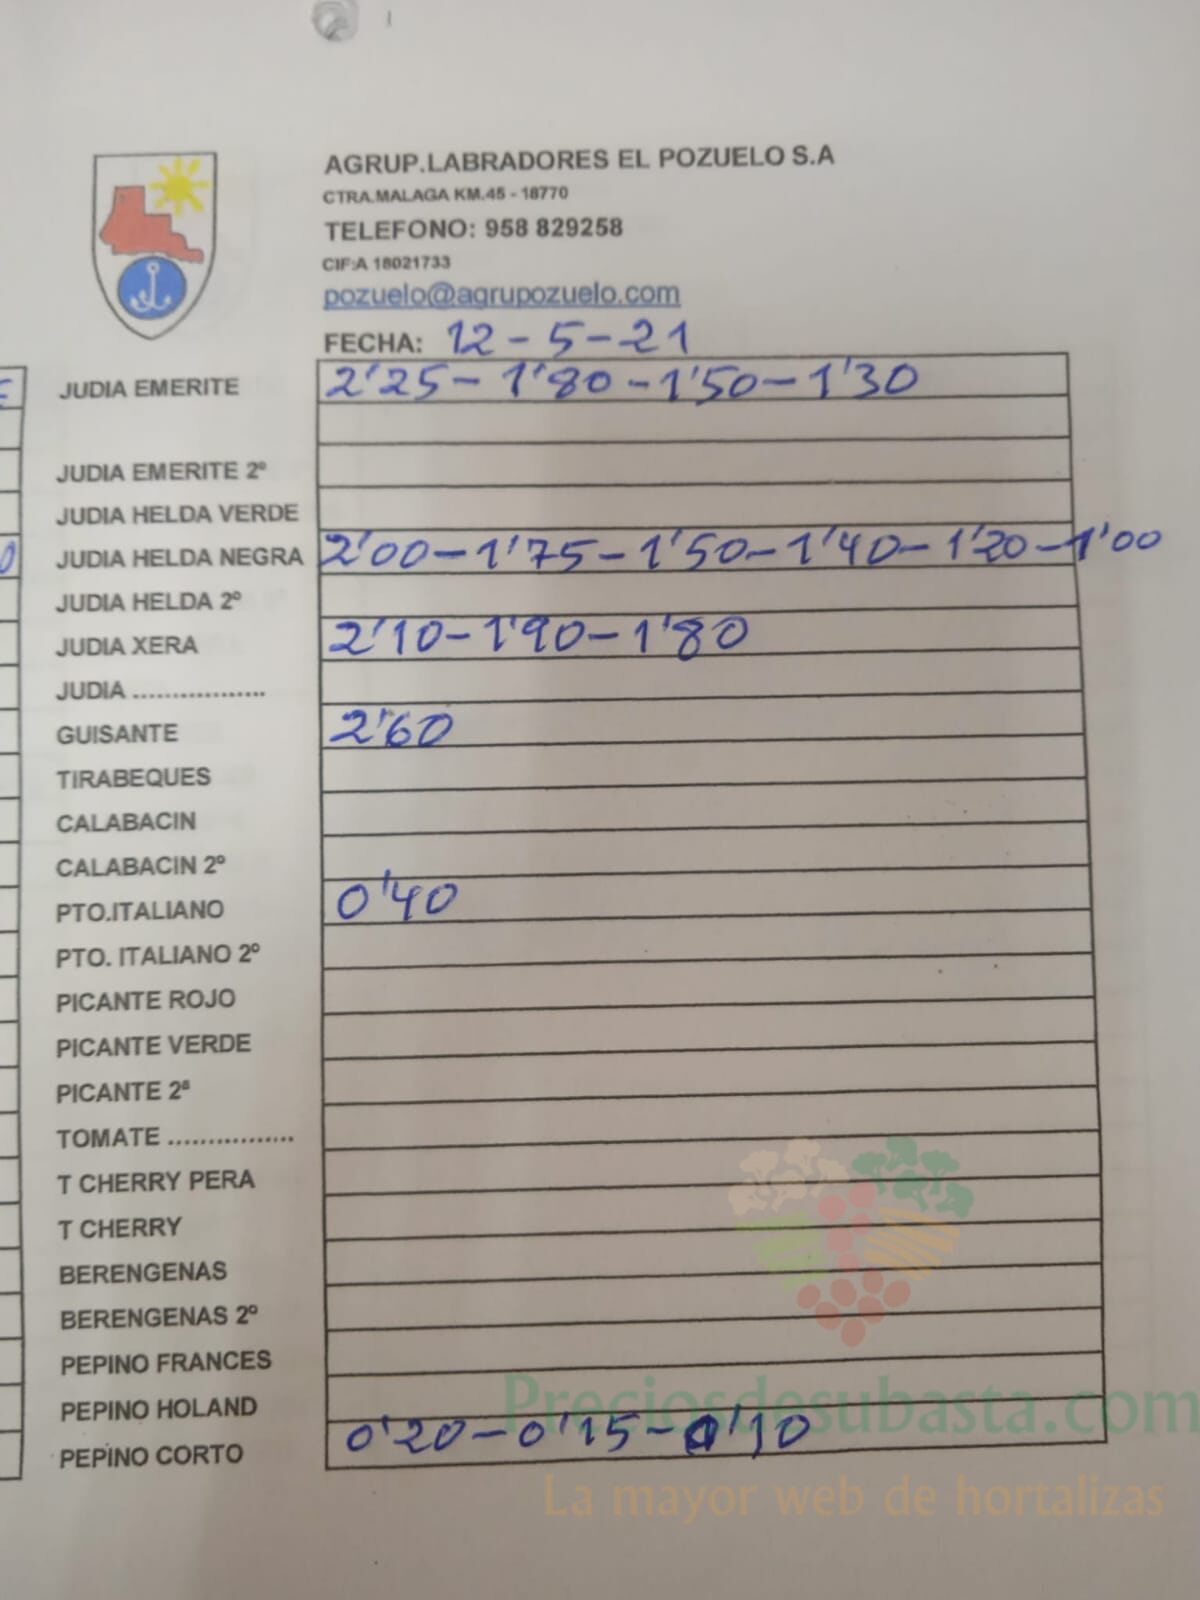 AGRUP.LABRADORES EL POZUELO S.A
CTRA.MALAGA KM.45 - 18770
TELEFONO: 958 829258
CIF:A 18021733
pozuelo@agrupozuelo.com
FECHA: 12-5-21
JUDIA EMERITE 2'25-1'80-1'50-1'30
JUDIA EMERITE 2º
JUDIA HELDA VERDE
JUDIA HELDA NEGRA 2'00-1'75-1'50-1'40-1'20-1'00
JUDIA HELDA 2º
JUDIA XERA 2'10-1'90-1'80
JUDIA .................
GUISANTE 2'60
TIRABEQUES
CALABACIN
CALABACIN 2º
PTO.ITALIANO 0'40
PTO. ITALIANO 2º
PICANTE ROJO
PICANTE VERDE
PICANTE 2ª
TOMATE ................
T CHERRY PERA
T CHERRY
BERENGENAS
BERENGENAS 2º
PEPINO FRANCES
PEPINO HOLAND
PEPINO CORTO 0'20-0'15-0'10
Preciosdesubasta.com
La mayor web de hortalizas